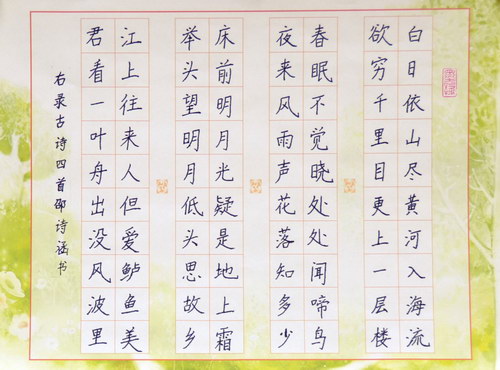 白日依山尽黄河入海流
欲穷千里目更上一层楼
春眠不觉晓处处闻啼鸟
夜来风雨声花落知多少
床前明月光疑是地上霜
举头望明月低头思故乡
江上往来人但爱鲈鱼美
君看一叶舟出没风波里
右录古诗四首邵诗涵书